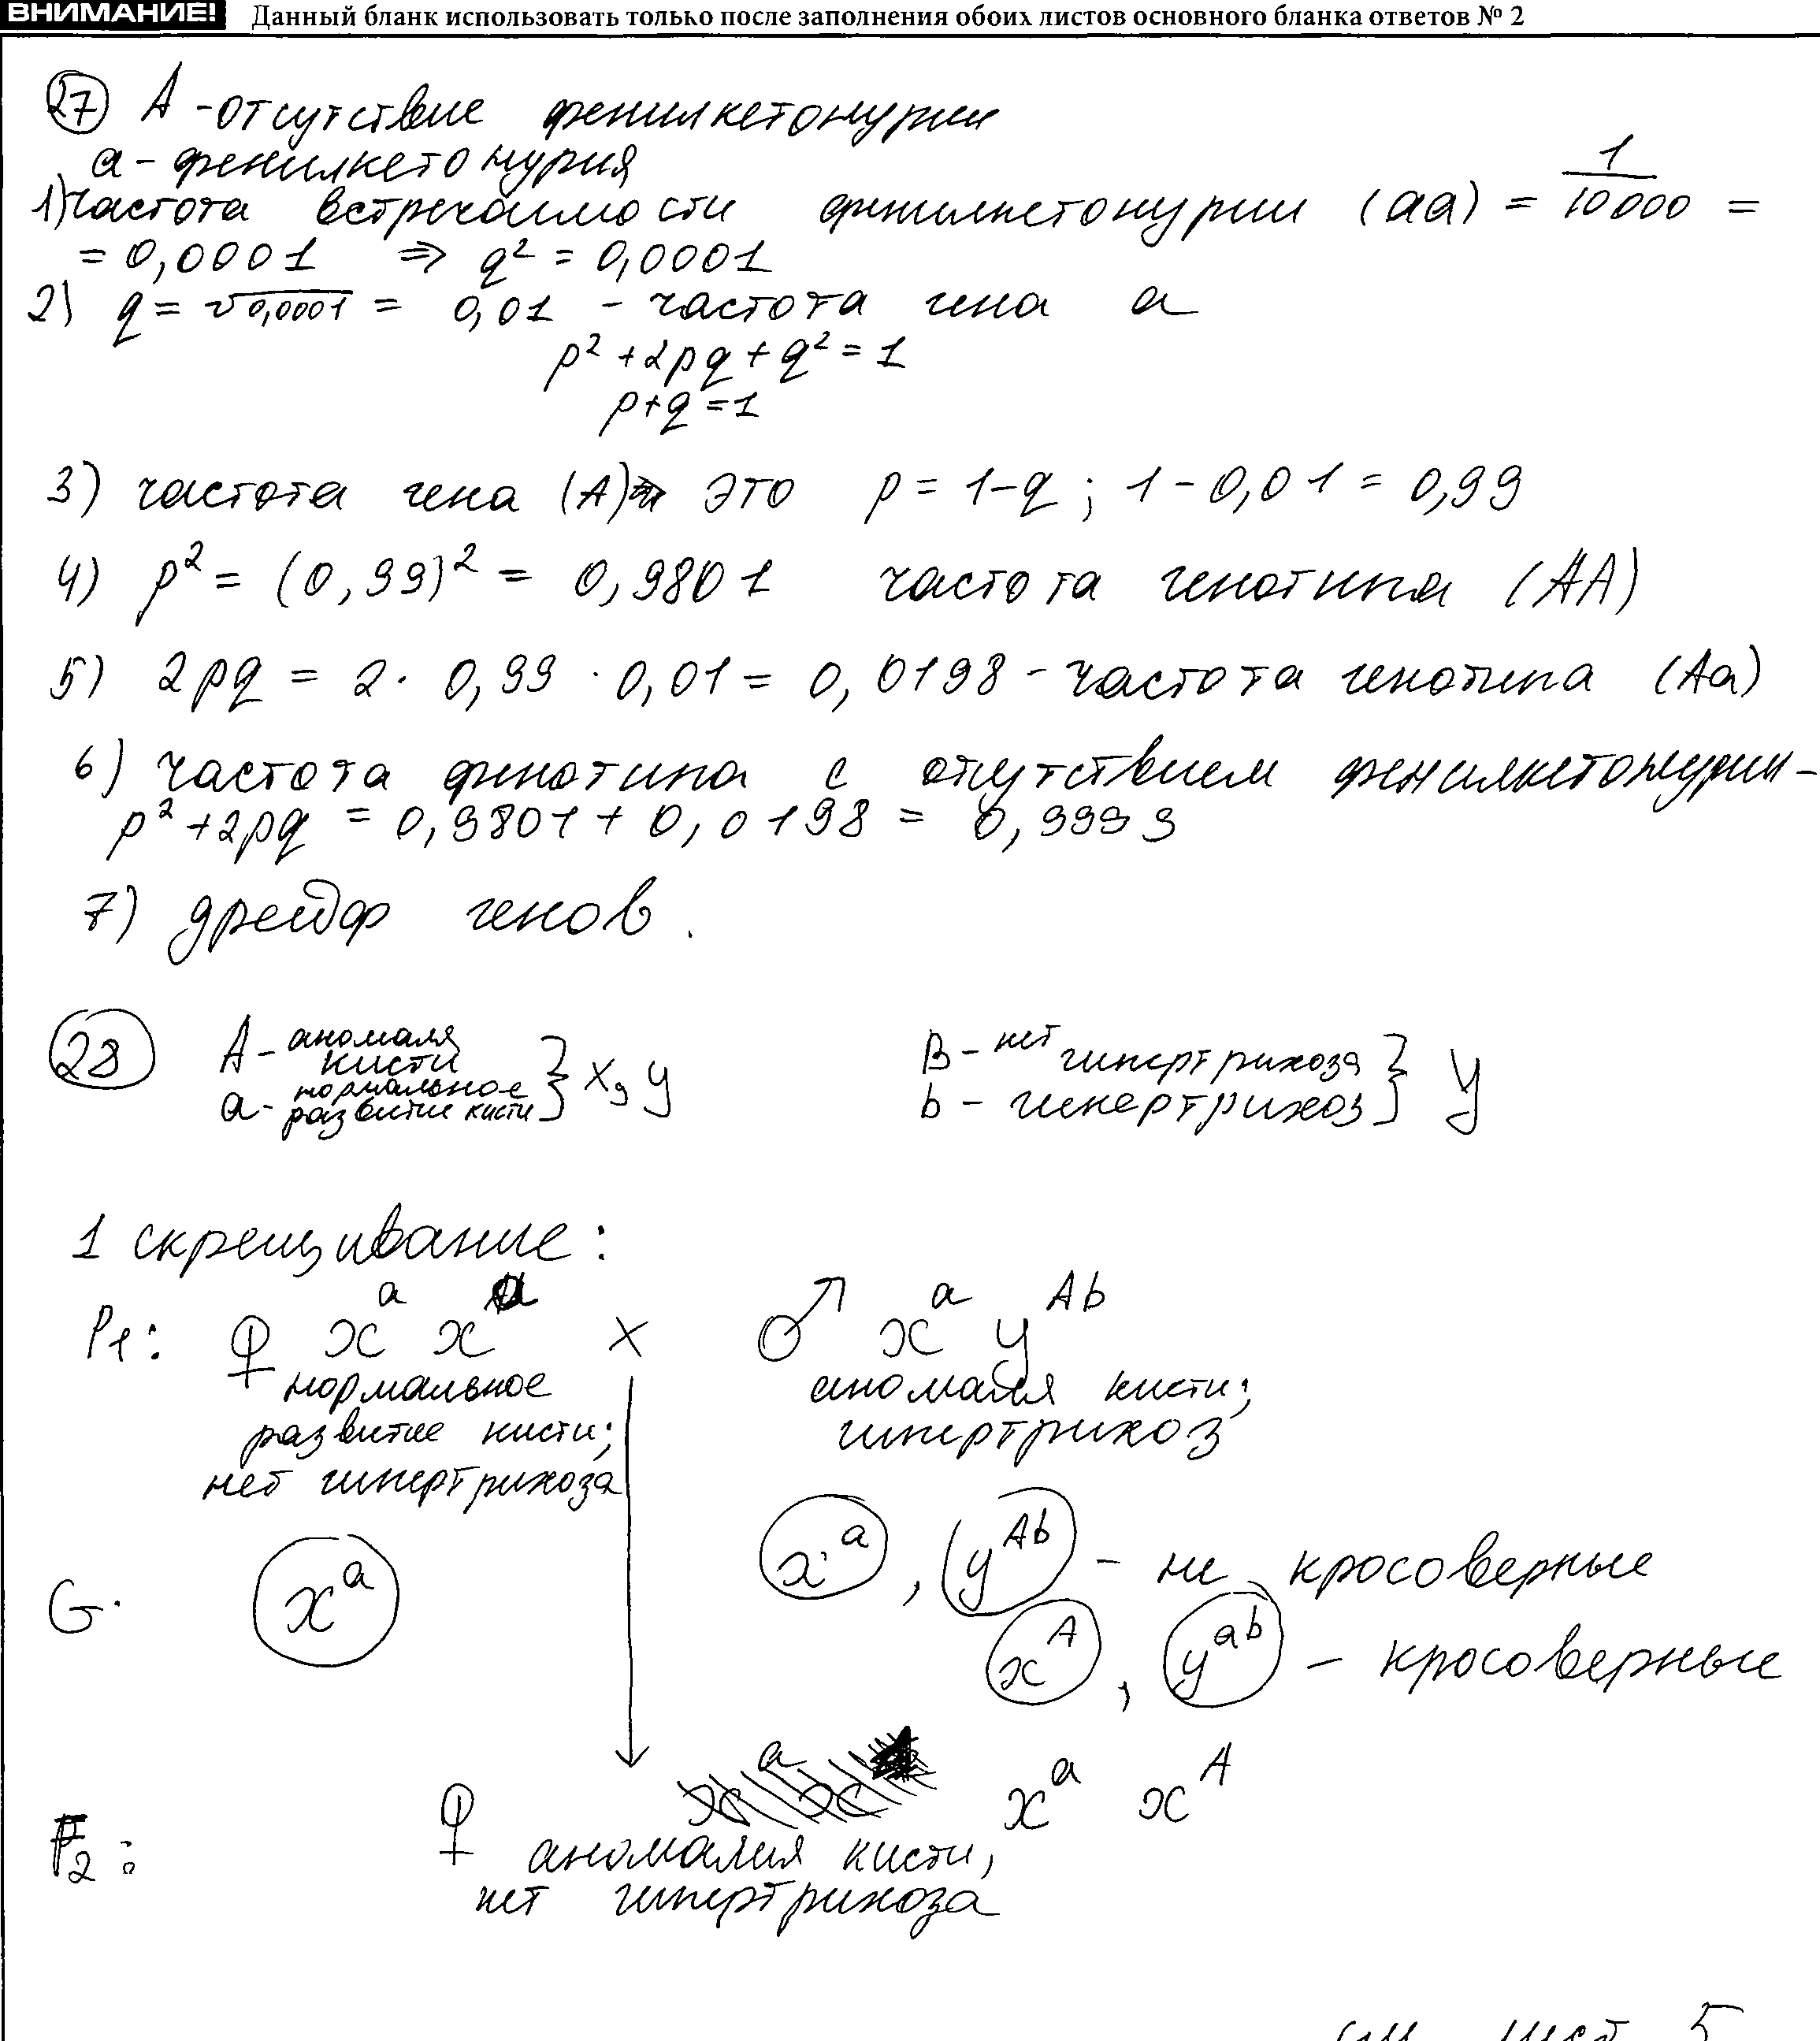 ВНИМАНИЕ! Данный бланк использовать только после заполнения обоих листов основного бланка ответов № 2
27) А - отсутствие фенилкетонурии
а - фенилкетонурия
1) Частота встречаимости фенилкетонурии (аа) = 1/10000 =
= 0,0001 ⇒ q² = 0,0001
2) q = √0,0001 = 0,01 - частота гена а
p² + 2pq + q² = 1
p + q = 1
3) частота гена (А) это p = 1-q ; 1 - 0,01 = 0,99
4) p² = (0,99)² = 0,9801 частота генотипа (АА)
5) 2pq = 2 · 0,99 · 0,01 = 0,0198 - частота генотипа (Аа)
6) частота фенотипа с отсутствием фенилкетонурии -
p² + 2pq = 0,9801 + 0,0198 = 0,9999
7) дрейф генов.
28 А - аномалия кисти } х, у В - нет гипертрихоза } у
а - нормальное развитие кисти b - гипертрихоз
1 скрещивание:
P₁: ♀ xᵃ xᵃ × ♂ xᵃ yᴬᵇ
нормальное аномалия кисти;
развитие кисти; гипертрихоз
нет гипертрихоза
G. xᵃ xᵃ , yᴬᵇ - не кросоверные
xᴬ , yᵃᵇ - кросоверные
F₂: ♀ xᵃ xᴬ
аномалия кисти,
нет гипертрихоза
см лист 5